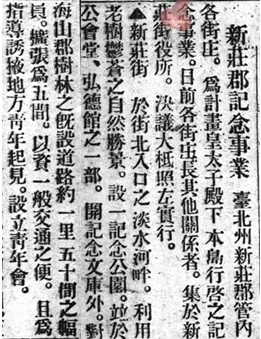 新莊郡記念事業 臺北州新莊郡管內
各街庄。爲計畫皇太子殿下本島行啓之記
念事業。日前各街庄長其他關係者。集於新
莊街役所。決議大柢照左實行。
▲新莊街 於街北入口之淡水河畔。利用
老樹鬱蒼之自然勝景。設一記念公園。並於
公會堂、弘德館之一部。開記念文庫外。對
海山郡樹林之既設道路約一里五十間之幅
員。擴張爲五間。以資一般交通之便。且爲
指導誘掖地方青年起見。設立青年會。